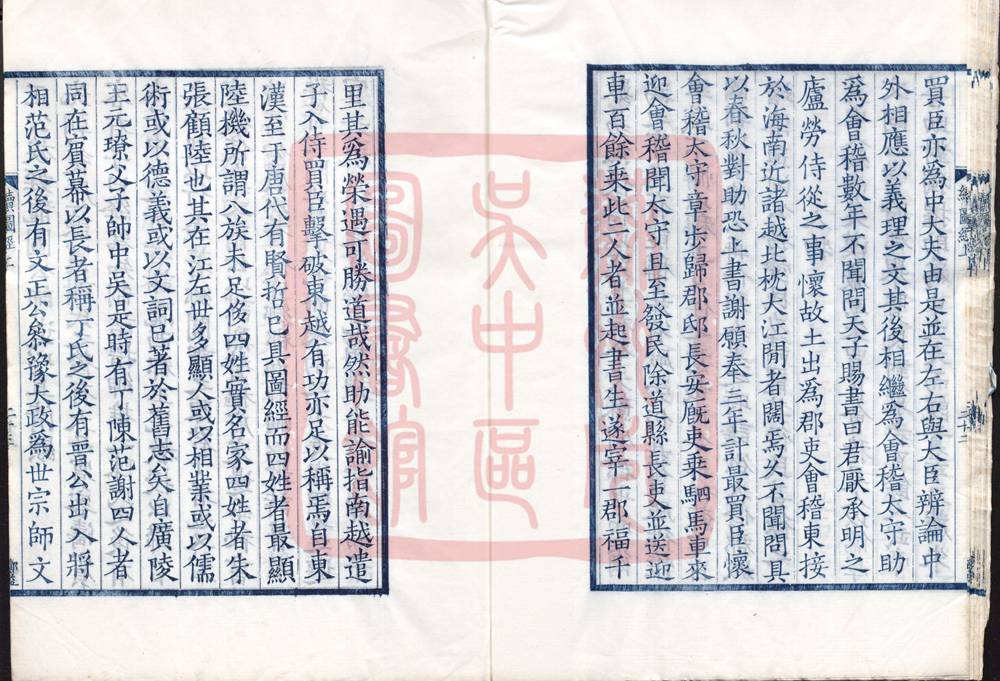 買臣亦爲中大夫由是並在左右與大臣辨論中
外相應以義理之文其後相繼為會稽太守助
爲會稽數年不聞問天子賜書曰君厭承明之
廬勞侍從之事懷故土出爲郡吏會稽東接
於海南近諸越北枕大江閒者闊焉久不聞問具
以春秋對助恐上書謝願奉三年計最買臣懷
會稽太守章步歸郡邸長安厩吏乗駟馬車來
迎會稽聞太守且至發民除道縣長吏並送迎
車百餘乗此二人者並起書生遂宰一郡福千
里其爲榮遇可勝道哉然助能諭指南越遣
子入侍買臣擊破東越有功亦足以稱焉自東
漢至于唐代有賢哲已具圖經而四姓者最顯
陸機所謂八族未足侈四姓實名家四姓者朱
張顧陸也其在江左世多顯人或以相業或以儒
術或以德義或以文詞已著於舊志矣自廣陵
王元璙父子帥中吳是時有丁陳范謝四人者
同在賓幕以長者稱丁氏之後有晋公出入將
相范氏之後有文正公叅豫大政爲世宗師文
續圖經上
二十三
蘇州市
吳中區
圖書館